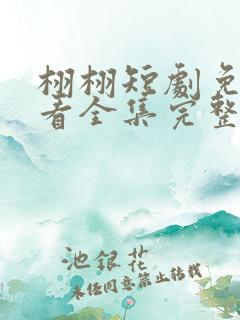 栩栩短劇免
看全集完整
池銀花
未经同意禁止转载